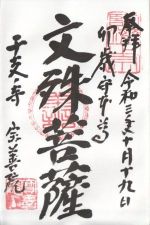 奉拝 令和三年十月十九日
卯歳守本尊
文殊菩薩
干支寺 宗善院